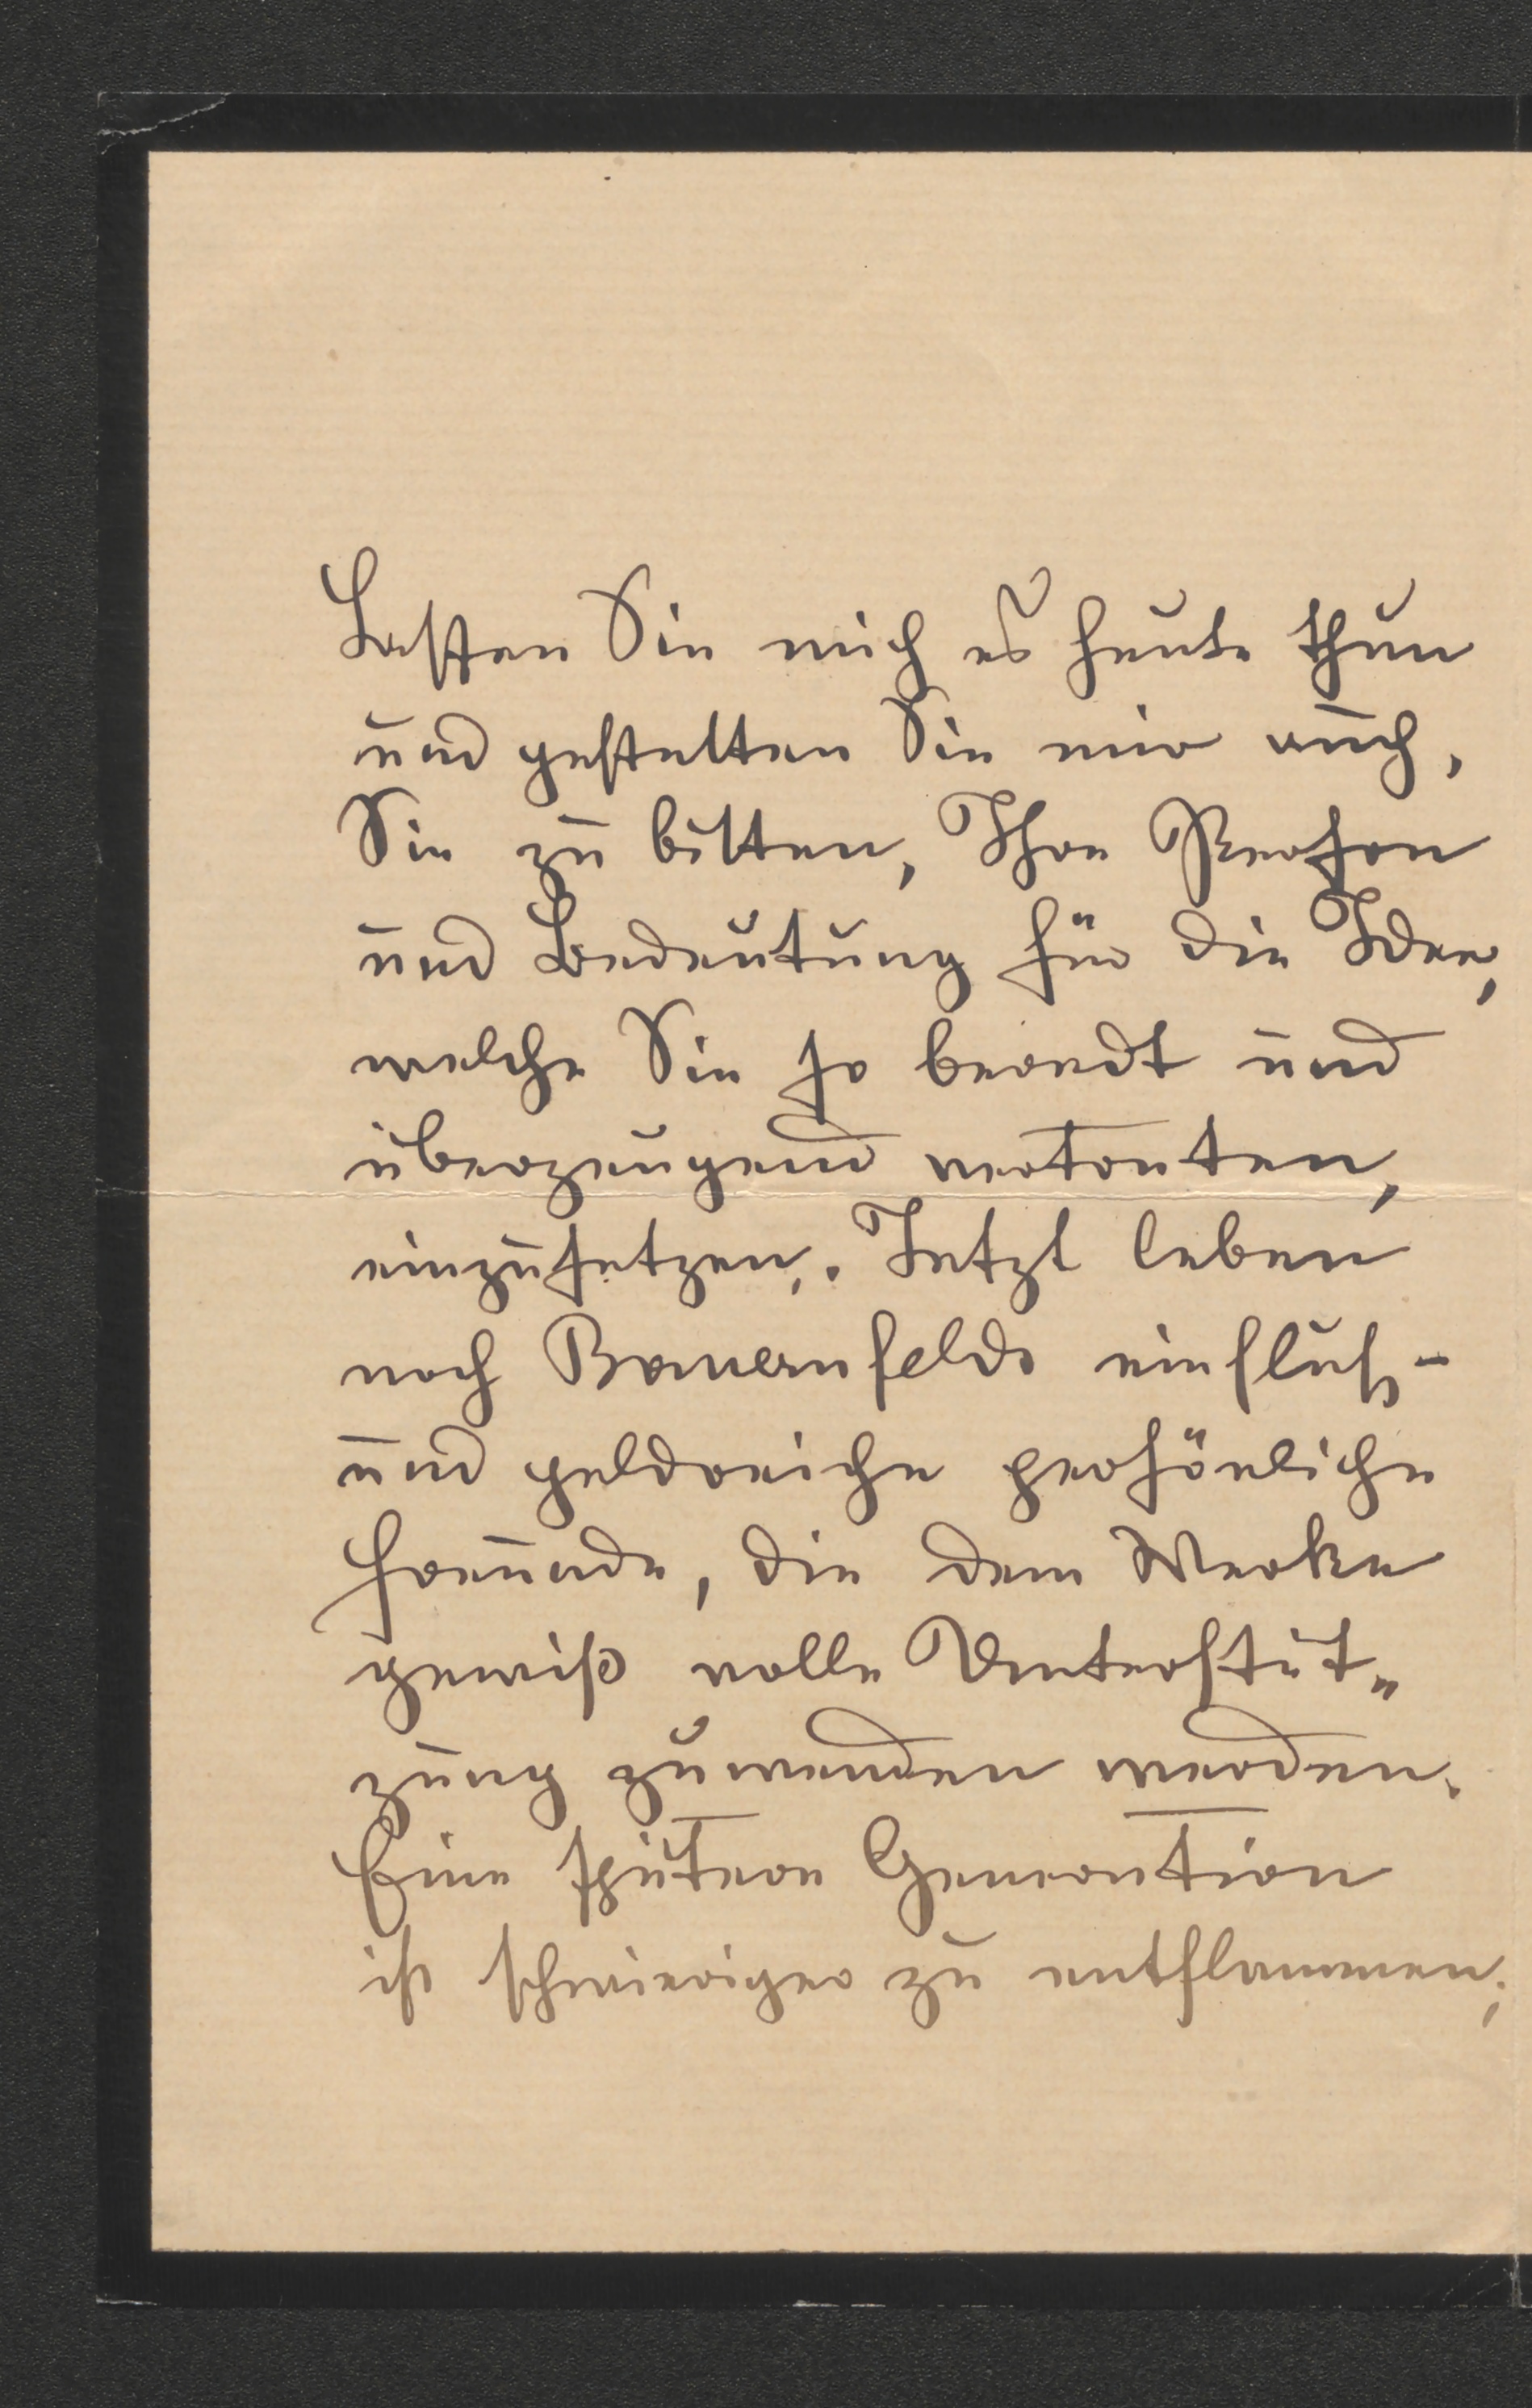 Lassen Sie mich es heute thun
und gestatten Sie mir auch,
Sie zu bitten, Ihre Person
und Bedeutung für die Idee,
welche Sie so beredt und
überzeugend vertraten,
einzusetzen. Jetzt leben
noch Bauernfelds einfluß-
und geldreiche persönliche
Freunde, die dem Werke
gewiß volle Unterstüt„
zung zuwenden werden.
Eine spätere Generation
ist schwieriger zu entflammen;